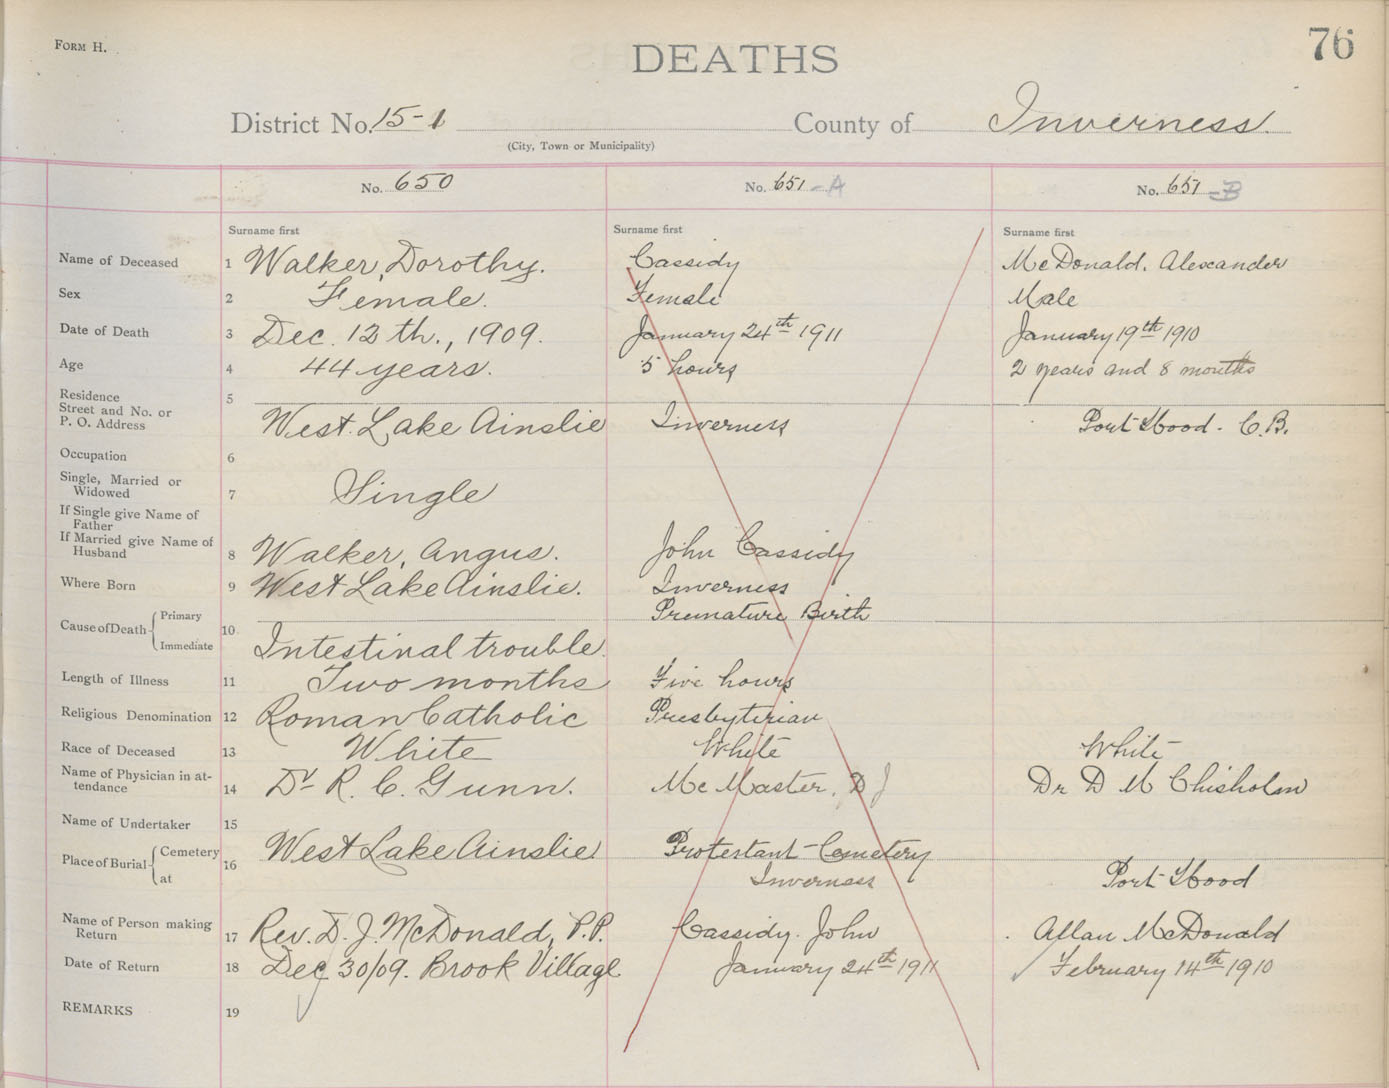 FORM H.
DEATHS
76
District No. 15-1 County of Inverness.
(City, Town or Municipality)
No. 650
No. 651 -A
No. 651 -B
Surname first
Surname first
Surname first
Name of Deceased 1 Walker, Dorothy. Cassidy McDonald, Alexander
Sex 2 Female. Female Male
Date of Death 3 Dec. 12th., 1909. January 24th 1911 January 19th 1910
Age 4 44 years. 5 hours 2 years and 8 months
Residence
Street and No. or
P. O. Address 5 West Lake Ainslie Inverness Port Hood - C.B.
Occupation 6
Single, Married or
Widowed 7 Single
If Single give Name of
Father
If Married give Name of
Husband 8 Walker, Angus. John Cassidy
Where Born 9 West Lake Ainslie. Inverness
Cause of Death Primary Premature Birth
10
Immediate Intestinal trouble.
Length of Illness 11 Two months Five hours
Religious Denomination 12 Roman Catholic Presbyterian
Race of Deceased 13 White White White
Name of Physician in at-
tendance 14 Dr R. C. Gunn. McMaster, D J Dr D M Chisholm
Name of Undertaker 15
Place of Burial Cemetery 16 West Lake Ainslie. Protestant Cemetery
at Inverness Port Hood
Name of Person making
Return 17 Rev. D. J. McDonald, P.P. Cassidy. John Allan McDonald
Date of Return 18 Dec 30/09. Brook Village January 24th 1911 February 14th 1910
REMARKS 19